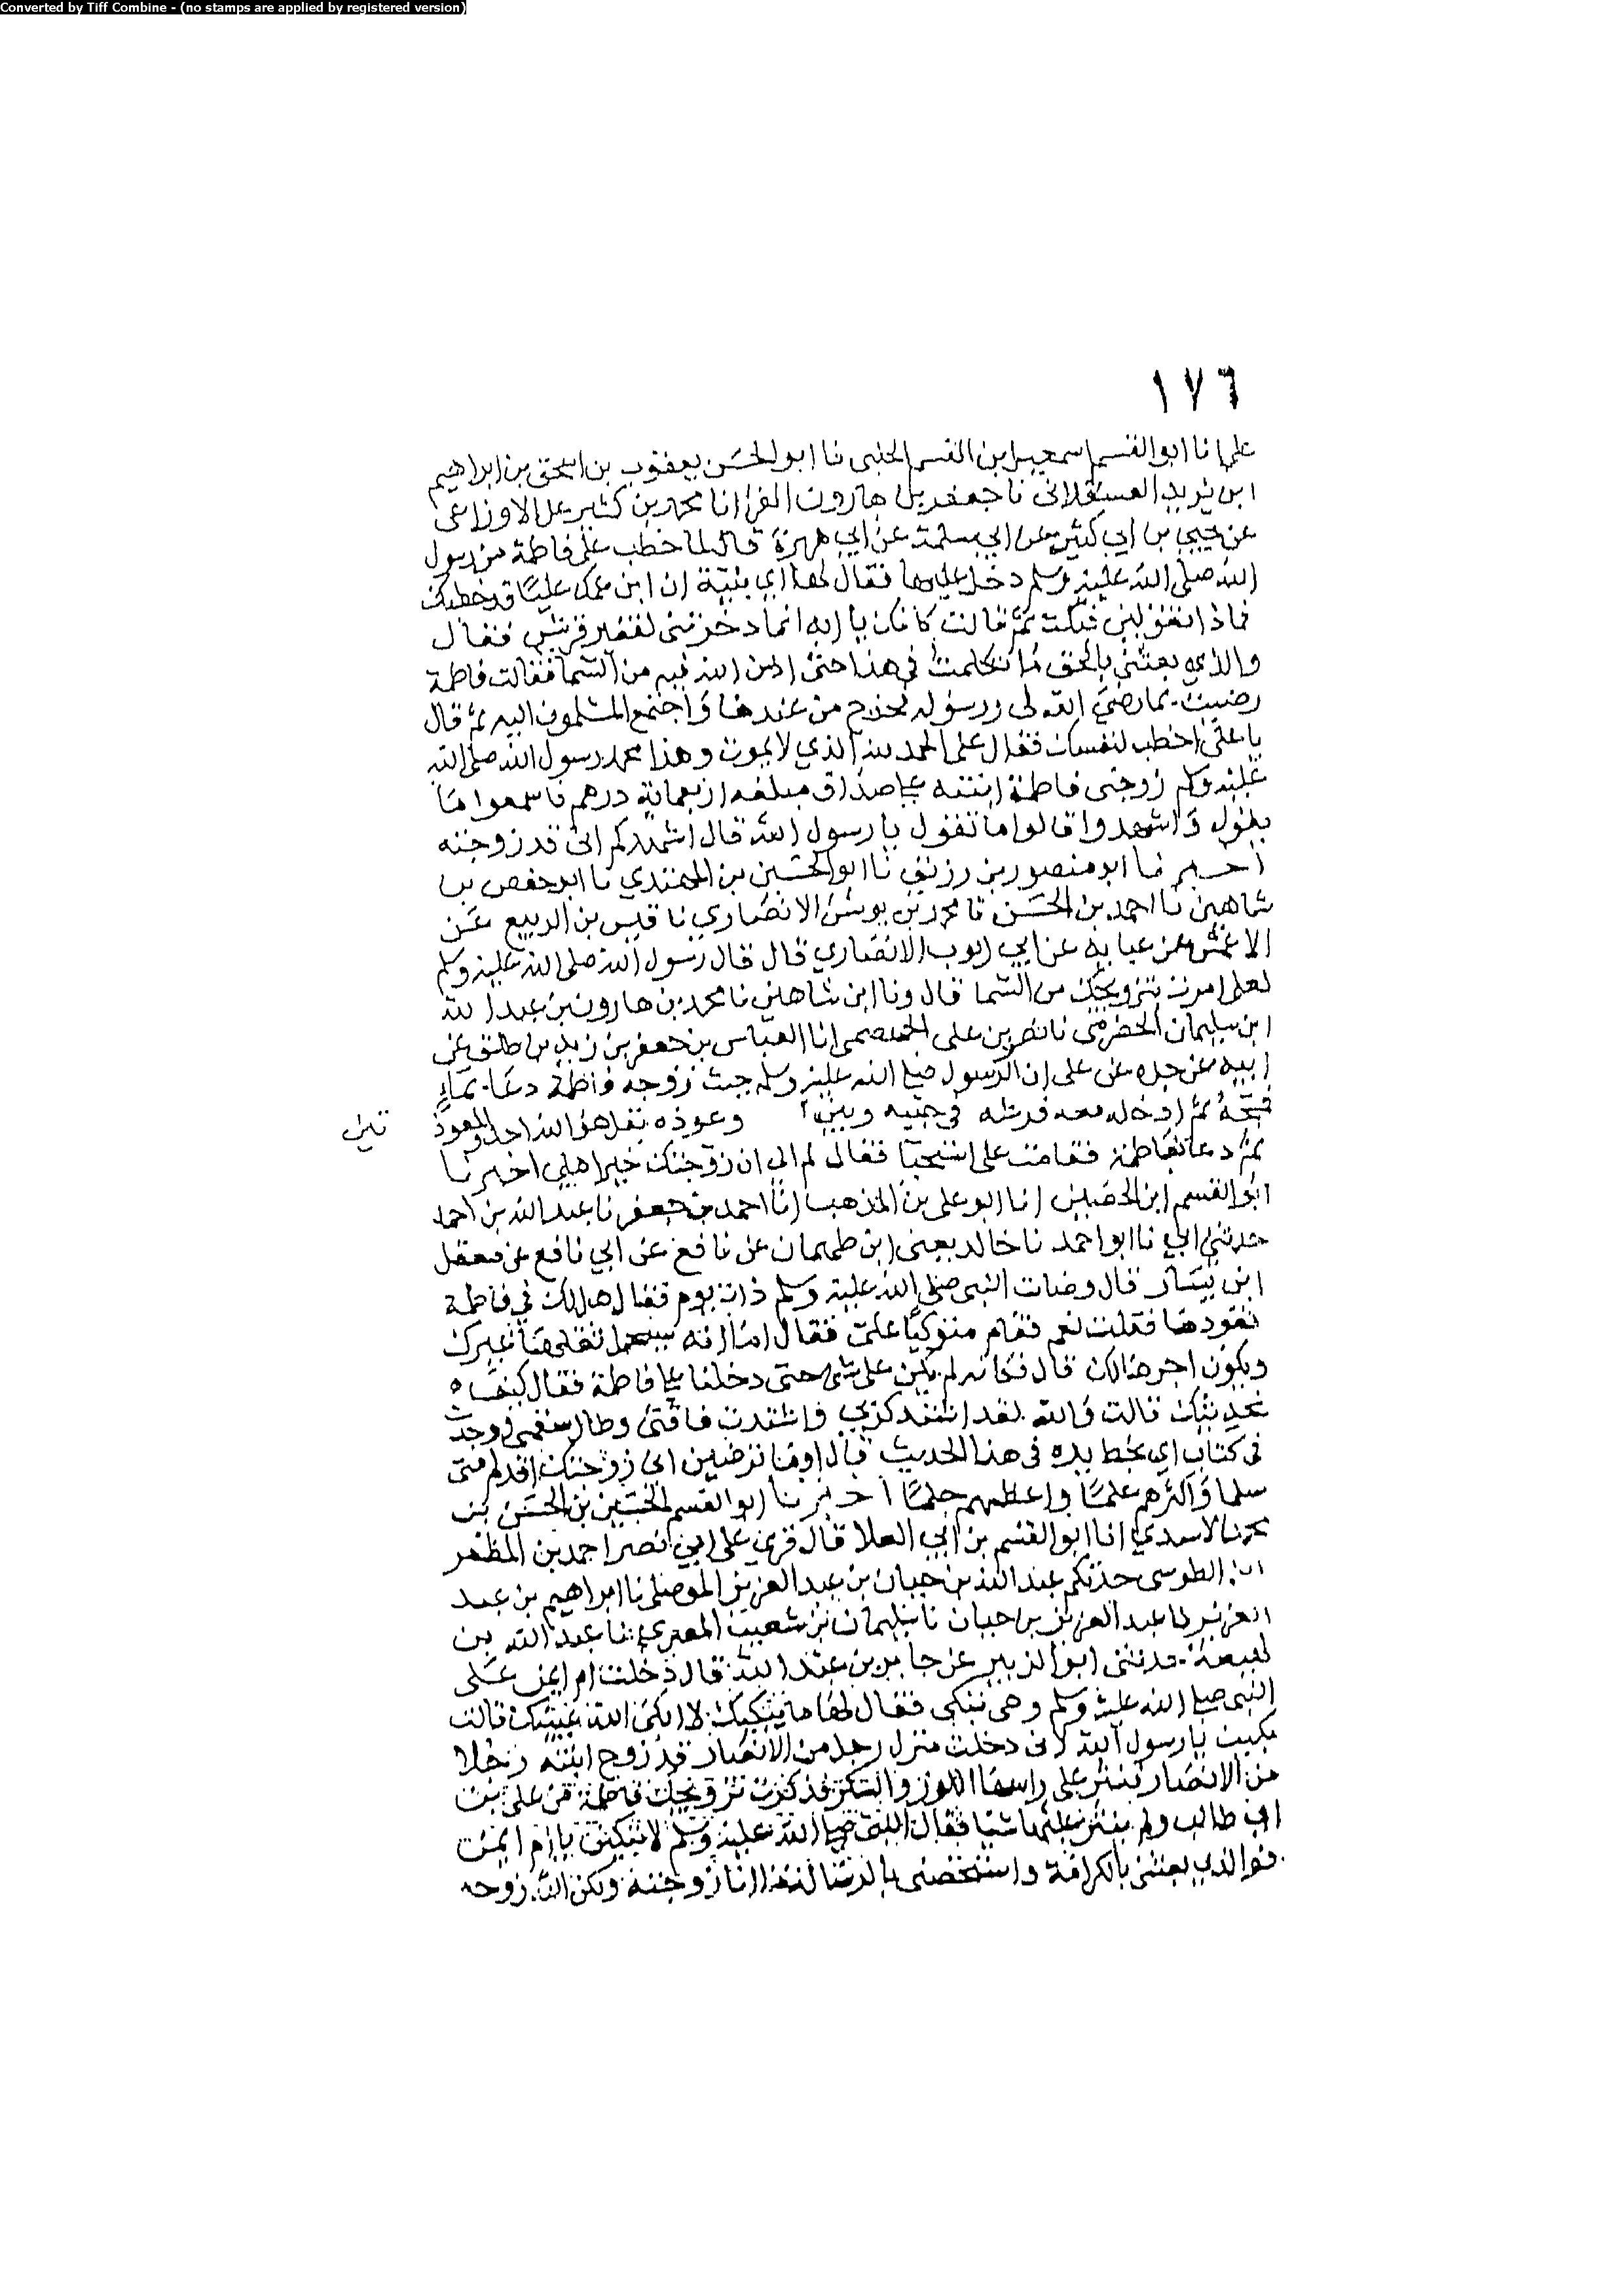 Converted by Tiff Combine - (no stamps are applied by registered version)
١٧٦
علي انا ابو القسم اسمعيل بن القسم الحلبي نا ابو الحسن يعقوب بن اسحق بن ابراهيم
ابن يزيد العسقلاني نا جعفر بن هارون الفرا نا محمد بن كثير عن الاوزاعي
عن يحيى بن ابي كثير عن ابي سلمة عن ابي هريرة قال لما خطب علي فاطمة من رسول
الله صلى الله عليه وسلم دخل عليها فقال لها اي بنية ان ابن عمك عليا قد خطبك
فماذا تقولين فبكت ثم قالت كانك يا ابه انما دخرتني لفقير قريش فقال
والذي بعثني بالحق ما تكلمت في هذا حتى اذن الله فيه من السما فقالت فاطمة
رضيت بما رضي الله لي ورسوله فخرج من عندها واجتمع المسلمون اليه ثم قال
يا علي اخطب لنفسك فقال علي الحمد لله الذي لا يموت وهذا محمد رسول الله صلى الله
عليه وسلم زوجني فاطمة ابنته على صداق مبلغه اربعماية درهم فاسمعوا ما
يقول واشهدوا قالوا ما تقول يا رسول الله قال اشهدكم اني قد زوجته
اخبرنا ابو منصور بن رزيق نا ابو الحسين بن المهتدي نا ابو حفص بن
شاهين نا احمد بن الحسن نا محمد بن يونس الانصاري نا قيس بن الربيع عن
الاعمش عن عباية عن ابي ايوب الانصاري قال قال رسول الله صلى الله عليه وسلم
لعلي امرت بتزويجك من السما قال ونا ابن شاهين نا محمد بن هارون بن عبد الله
ابن سليمان الحضرمي نا نصر بن علي الجهضمي انا العباس بن جعفر بن زيد بن طلق عن
ابيه عن جده عن علي ان الرسول صلى الله عليه وسلم حيث زوجه فاطمة دعا بماء
فمجه ثم ادخله معه فرشه في جيبه وبين وعوذه بقل هو الله احد والمعوذ تين
ثم دعا فاطمة فقامت على استحيا فقال لم ال ان زوجتك خير اهلي اخبرنا
ابو القسم ابن الحصين انا ابو علي بن المذهب انا احمد بن جعفر نا عبد الله بن احمد
حدثني ابي نا ابو احمد نا خالد يعني ابن طهمان عن نافع عن ابي نافع عن معقل
ابن يسار قال وضات النبي صلى الله عليه وسلم ذات يوم فقال هل لك في فاطمة
تعودها فقلت نعم فقام متوكيا علي فقال اما انه سيحمل ثقلها غيرك
ويكون اجرها لك قال فكانه لم يكن علي شي حتى دخلنا على فاطمة فقال كيف
تجدينك قالت والله لقد اشتد كربي واشتدت فاقتي وطال سقمي ووجدت
في كتاب ابي بخط يده في هذا الحديث قال اوما ترضين اني زوجتك اقدم امتى
سلما واكثرهم علما واعظمهم حلما اخبرنا ابو القسم الحسين بن الحسن بن
محمد الاسدي انا ابو القسم بن ابي العلا قال قري على ابي نصر احمد بن المظفر
الطوسي حدثكم عبد الله بن حبان بن عبد العزيز الموصلي نا ابراهيم بن عبد
العزيز نا عبد العزيز بن حبان نا سليمان بن شعيب المصري نا عبد الله بن
لهيعة حدثني ابو الزبير عن جابر بن عبد الله قال دخلت ام ايمن على
النبي صلى الله عليه وسلم وهي تبكي فقال لها ما يبكيك لا ابكى الله عينيك قالت
بكيت يا رسول الله لاني دخلت منزل رجل من الانصار قد زوج ابنته رجلا
من الانصار فنثر على راسها اللوز والسكر فذكرت تزويجك فاطمة من علي بن
ابي طالب ولم ينثر عليها شيا فقال النبي صلى الله عليه وسلم لا تبكين يا ام ايمن
فوالذي بعثني بالكرامة واستخصني بالرسالة ما انا زوجته ولكن الله زوجه